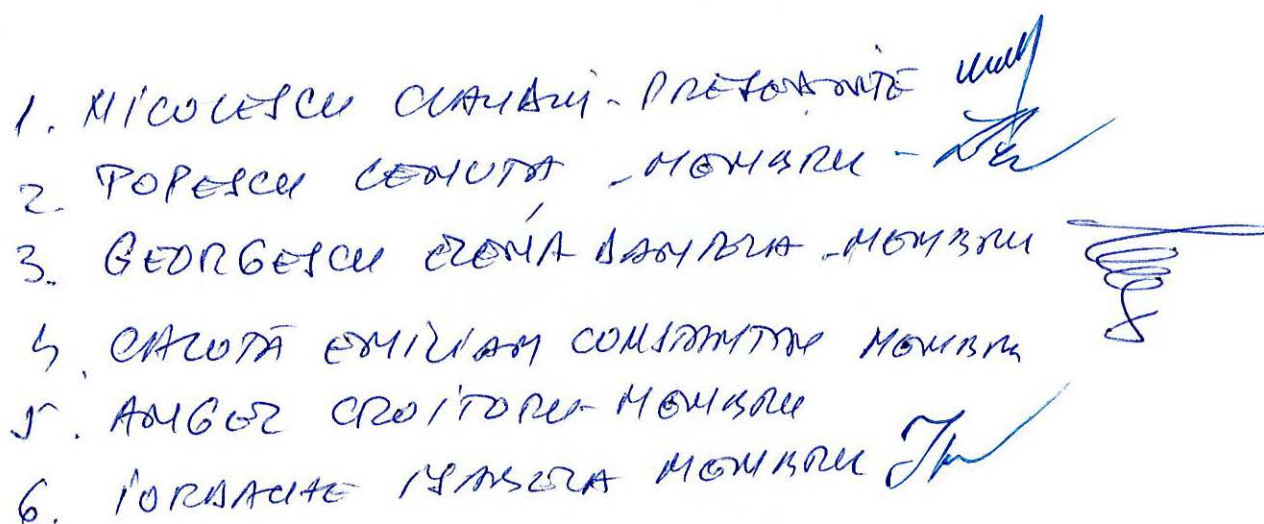 1. NICOLESCU CLAUDIU - PRESEDINTE
2. POPESCU LENUTA - MEMBRU -
3. GEORGESCU ELENA DANIELA - MEMBRU
4. CALOTĂ EMILIAN CONSTANTIN MEMBRU
5. ANGEL CROITORU - MEMBRU
6. IORDACHE ISABELA MEMBRU